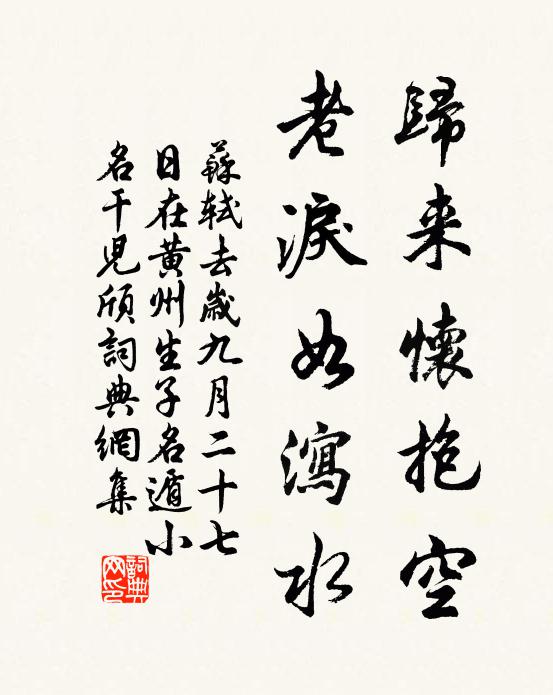 歸来懷抱空
老淚如瀉水
蘇軾去歲九月二十七
日在黃州生子名遁小
名干児頎詞典網集
詞典
网印